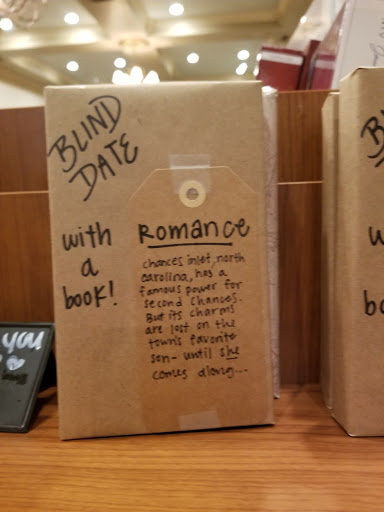 BLIND
DATE
with
a
book!
Romance
chances inlet, north
carolina, has a
famous power for
second chances.
But its charms
are lost on the
town's favorite
son- until she
comes along...
you
B
w
bo